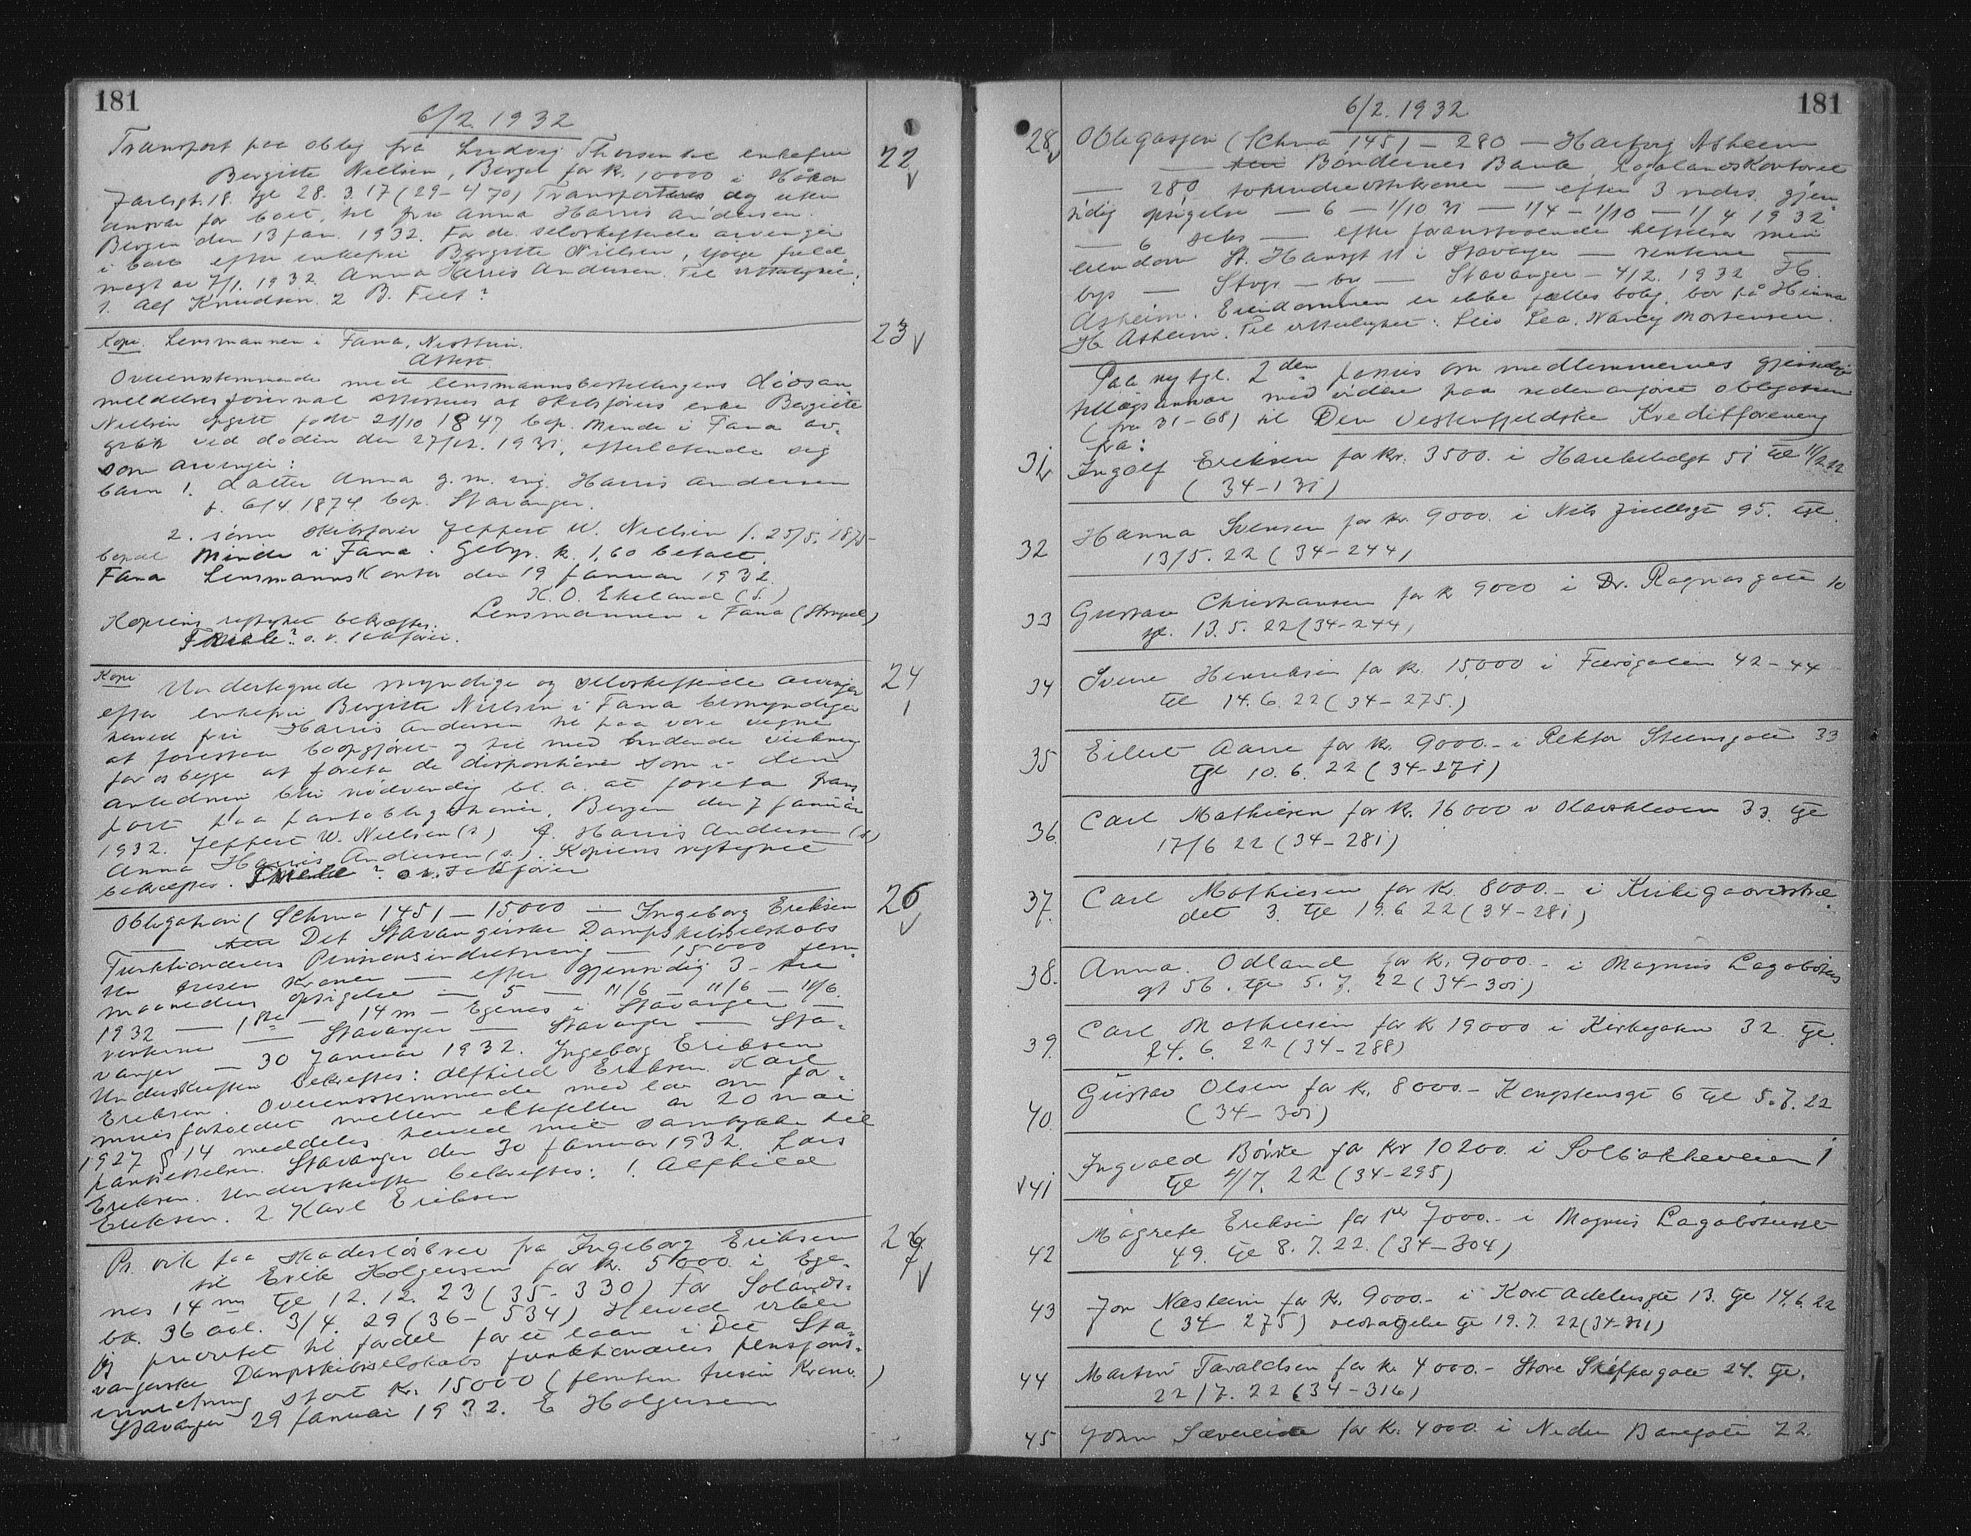 181
6/2 1932
Transport paa oblig fra Ludvig Thorsen til enkefru
Bergitte Nielsen, Bergen for kr. 10000 i Håkon
Jarlsgt. 18. tgl 28. 3. 17 (29-470) Transporteres og uten
ansvar for boet, til fru Anna Harris Andersen.
Bergen den 13 jan. 1932. For de selvskiftende arvinger
i boet efter enkefru Bergitte Nielsen, ifølge fuld-
magt av 7/1. 1932 Anna Harris Andersen. Til vitterlighet:
1. Alf Knudsen. 2 B. Fett?
22
Kopi. Lensmannen i Fana, Nesttun.
Attest.
23
Overensstemmende med lensmannsbestillingens dødsan
meldelsesjournal attesteres at skibsførers enke Bergitte
Nielsen opgitt født 21/10 1847 bop. Minde i Fana av-
gikk ved døden den 27/12. 1931, efterlatende sig
som arvinger:
barn 1. Datter Anna g. m. ing. Harris Andersen
f. 6/4 1874 bop. Stavanger.
2. sønn skibsfører Jeppert W. Nielsen f. 25/5. 1875
bopæl Minde i Fana. Gebyr. k. 1,60 betalt.
Fana Lensmannskontor den 19 januar 1932.
K. O. Ekeland (s.)
Lensmannen i Fana (Stempel)
Kopiens rigtighet bekræftes.
o. r. sakfører.
Kopi
24
Undertegnede myndige og selvskiftende arvinger
efter enkefru Bergitte Nielsen i Fana bemyndiger
herved fru Harris Andersen til paa vore vegne
at forestaa boopgjøret og til med bindende virkning
for os begge at foreta de dispositioner som i den
anledning blir nødvendig bl. a. at foreta trans
port paa pantobligationer. Bergen den 7 januar
1932. Jeppert W. Nielsen (s) A. Harris Andersen (s)
Anna Harris Andersen (s.). Kopiens rigtighet
bekræftes. ? o. r. sakfører
26
Obligation (Schma 145) - 15000 - Ingeborg Eriksen
Det Stavangerske Dampskibsselskabs
Funktionærers Pensionsindretning - 15000 fem-
ten tusen kroner - efter gjensidig 3 - tre
maaneders opsigelse - 5 - 11/6 - 11/6 - 11/6.
1932 - 1ste - 14 m - Egenes i Stavanger -
renterne - Stavanger - Stavanger - Sta-
vanger - 30 januar 1932. Ingeborg Eriksen
Underskriften bekreftes: Alfhild Eriksen. Karl
Eriksen. Overensstemmende med lov om for-
muesforholdet mellem ektefeller av 20 mai
1927 § 14 meddeles herved mit samtykke til
pantsettelsen. Stavanger den 30 januar 1932. Lars
Eriksen. Underskriften bekreftes: 1. Alfhild
Eriksen. 2 Karl Eriksen
Pr. vik paa skadesløsbrev fra Ingeborg Eriksen
til Erik Holgersen for kr. 5000 i Ege-
nes 14 m tgl 12. 12. 23 (35-330) For Solands-
bk. 36 avl. 3/4. 29 (36-534) Herved viker
jeg prioritet til fordel for et laan i Det Sta-
vangerske Dampskibsselskabs funktionærers pensjons-
innretning stort Kr. 15000 (femten tusen Kroner)
Stavanger 29 januar 1932. E Holgersen
181
6/2. 1932
28
Obligasjon (Schma 145) - 280 - Hartvig Asheim
- Bøndernes Bank, Rogalandskontoret
- 280 tohundreottikroner - efter 3 mdrs. gjen
sidig opsigelse - 6 - 1/10 31 - 1/4 - 1/10 - 1/4 1932
- 6 seks - efter foranstaaende heftelser min
eiendom St. Hansgt 11 i Stavanger - renterne -
bys - Stvgr - by - Stavanger - 4/2. 1932 H.
Asheim. Eiendommen er ikke fælles bolig, bor på Hinna
H. Asheim. Til vitterlighet: Leiv Lea. Nancy Mortensen.
Paa ny tgl. 2den passus om medlemmernes gjensidige
tillægsansvar med videre paa nedenanførte obligationer
(fra 31-68) til Den Vestenfjeldske Kreditforening
fra:
31
Ingolf Eriksen for kr. 3500. i Haukeligt 51 tgl 11/2 22
(34-131)
32
Hanna Svensen for kr. 9000. i Nils Juelsgt 95. tgl.
13/5. 22 (34-244)
33
Gustav Christiansen for k 9000 i Dr. Ragnasgate 10
tgl. 13. 5. 22 (34-244)
34
Svend Henriksen for kr. 15,000 i Færøgaten 42-44
tgl 14. 6. 22 (34-275.)
35
Eilert Aarre for kr. 9000.- i Rektor Steensgate 33
tgl 10. 6. 22 (34-271)
36.
Carl Mathiesen for kr. 16000 i Olavskleven 33. tgl
17/6 22 (34-281)
37.
Carl Mathiesen for Kr. 8000.- i Kirkegaardstræ-
det 3. tgl 19. 6 22 (34-281)
38.
Anna Odland for kr. 9000.- i Magnus Lagabøtes
gt 56. tgl 5. 7. 22 (34-301)
39.
Carl Mathiesen for kr 19000 i Kirkegaten 32. tgl.
24. 6. 22 (34-288)
40.
Gustav Olsen for kr. 8000.- Kongstensgt 6 tgl 5. 7. 22
(34-301)
41
Ingvald Børke for kr 10200. i Solbakkeveien 1
tgl 4/7. 22 (34-295)
42
Magrete Eriksen for kr 7000.- i Magnus Lagabøtesgt
49. tgl 8. 7. 22. (34-304)
43
Jon Næsheim for kr. 9000.- i Kort Adelersgt 13. tgl 14. 6. 22
(34 275) vedtagelse tgl 19. 7. 22 (34-311)
44
Martin Tavaldsen for kr. 4000.- Store Skippergate 24. tgl.
22/7. 22 (34-316)
45
John Sævereide for kr. 4000. i Nedre Banegate 22.